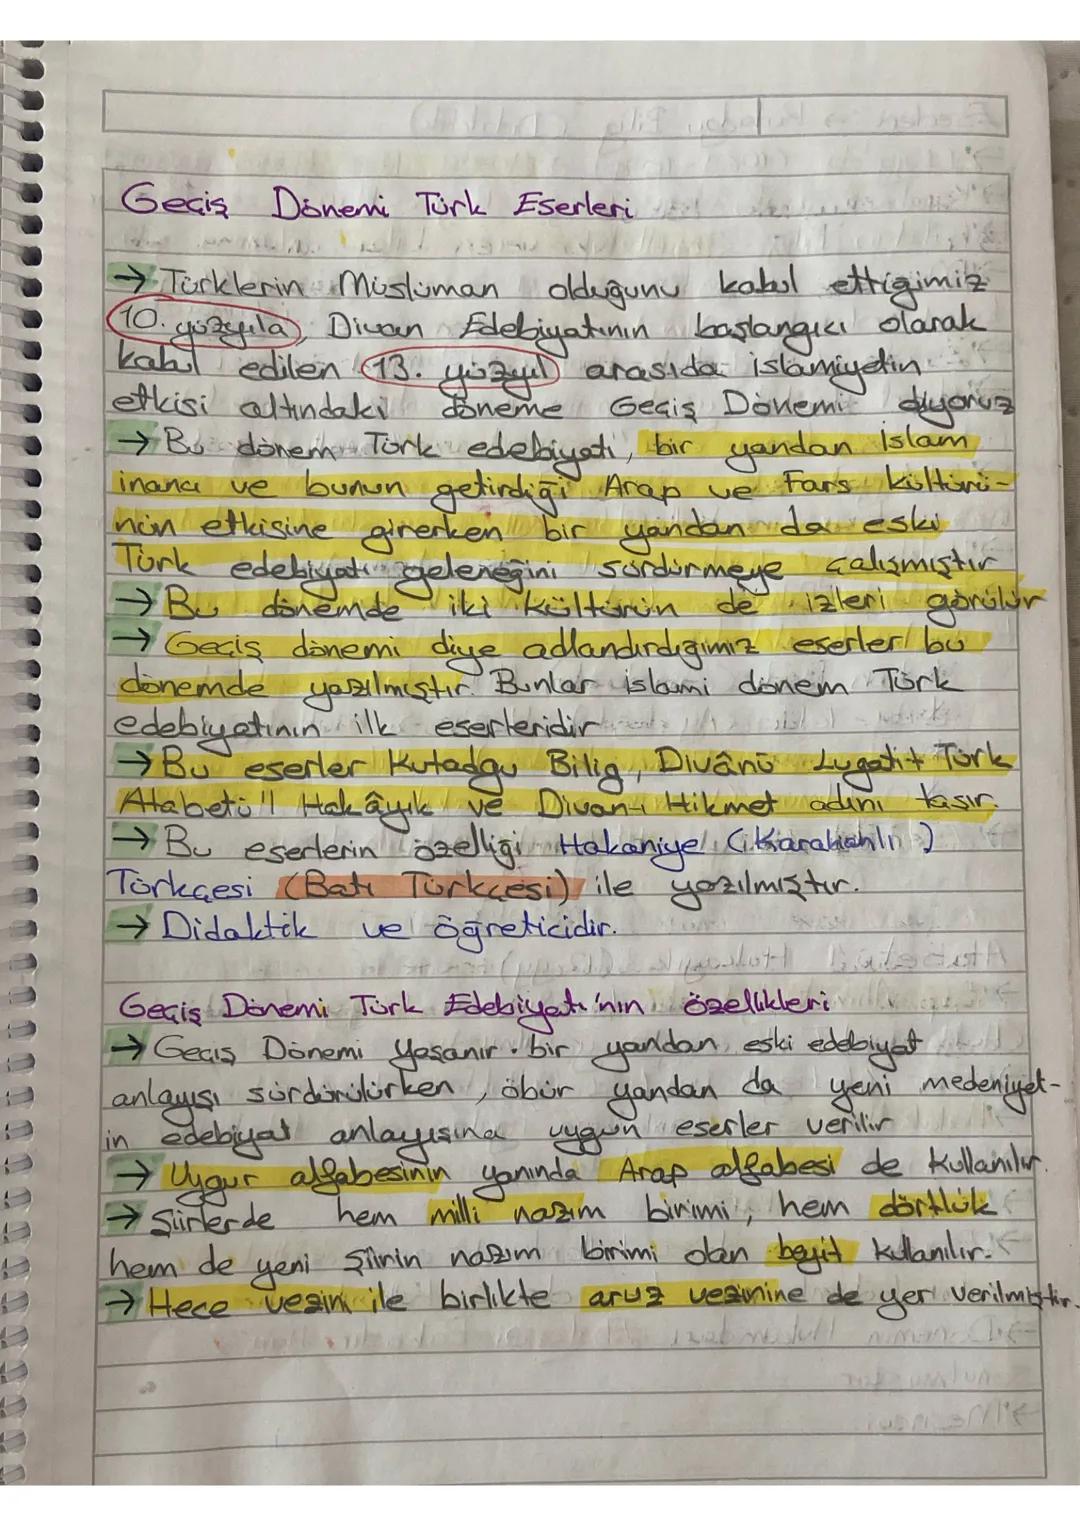 Geçiş Dönemi Türk Eserleri
→ Türklerin Müslüman olduğunu kabul ettiğimiz
10. yüzyıla, Divan Edebiyatının başlangıcı olarak
kabul edilen 13. yüzyıl arasıda islamiyetin
etkisi altındaki döneme Geçiş Dönemi diyoruz
→ Bu dönem Türk edebiyatı, bir yandan islam
inancı ve bunun getirdiği Arap ve Fars kültürü-
nün etkisine girerken bir yandan da eski
Türk edebiyatı geleneğini sürdürmeye çalışmıştır
→ Bu dönemde iki kültürün de izleri görülür
→ Geçiş dönemi diye adlandırdığımız eserler bu
dönemde yazılmıştır. Bunlar islami dönem Türk
edebiyatının ilk eserleridir
→ Bu eserler Kutadgu Bilig, Divânü Lugatit Türk
Atabetü'l Hakâyık ve Divan-ı Hikmet adını taşır.
→ Bu eserlerin özelliği Hakaniye (Karahanlı)
Türkçesi (Batı Türkçesi) ile yazılmıştır.
→ Didaktik ve öğreticidir.
Geçiş Dönemi Türk Edebiyatı'nın özellikleri
→ Geçiş Dönemi Yaşanır. bir yandan eski edebiyat
anlayışı sürdürülürken, öbür yandan da yeni medeniyet-
in edebiyat anlayışına uygun eserler verilir
→ Uygur alfabesinin yanında Arap alfabesi de kullanılır.
→ Şiirlerde hem milli nazım birimi, hem dörtlük
hem de yeni Şiirin nazım birimi olan beyit kullanılır.
→ Hece vezini ile birlikte aruz vezinine de yer verilmiştir.